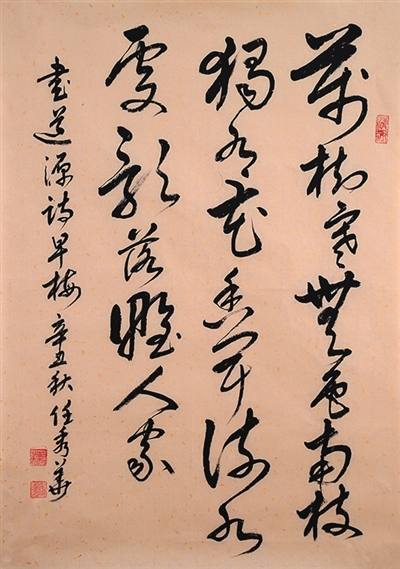 萬樹寒無色南枝
獨有花香聞流水
處影落野人家
書道源詩早梅 辛丑秋 任秀華